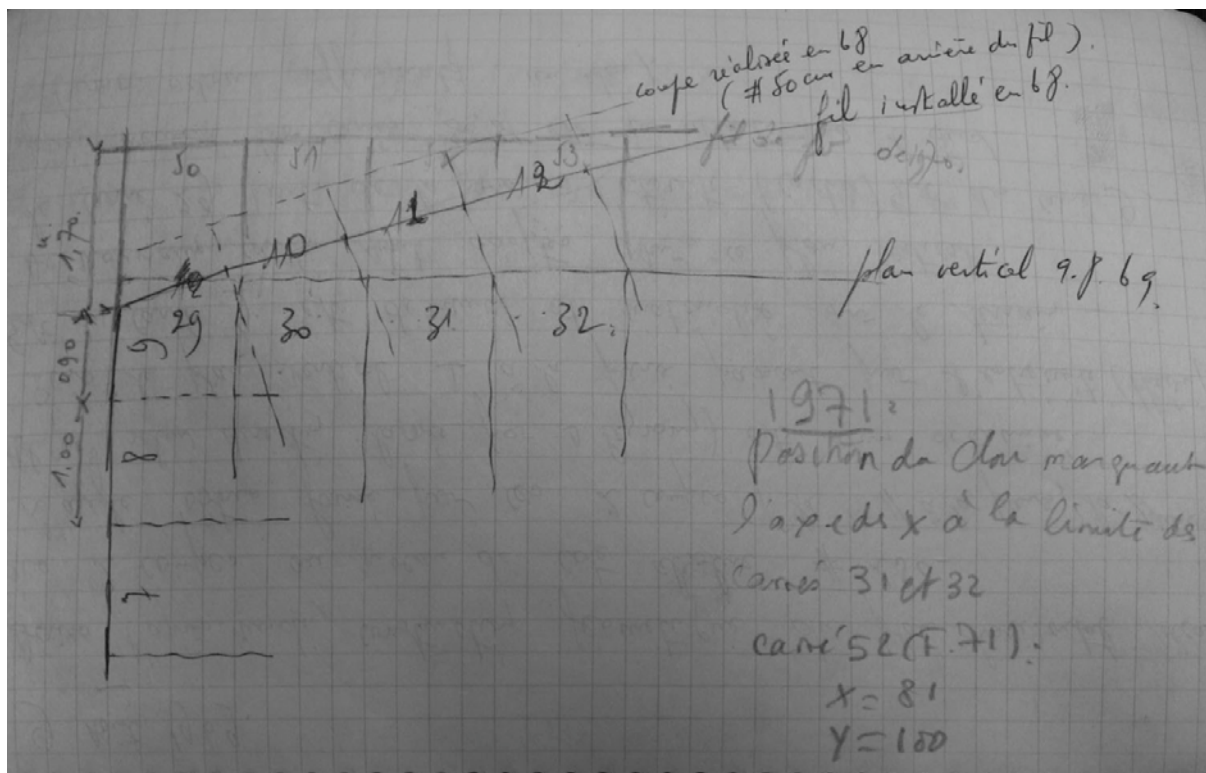 coupe réalisée en 68
(# 50 cm en arrière du fil).
fil installé en 68.
50 51 53
10 11 12
1,70
plan vertical 9.8.69.
29 30 31 32.
0,90
1,00
9
8
7
1971:
Position du clou marquant
l'axe des x à la limite des
carrés 31 et 32
carré 52 (F.71):
X = 81
Y = 100